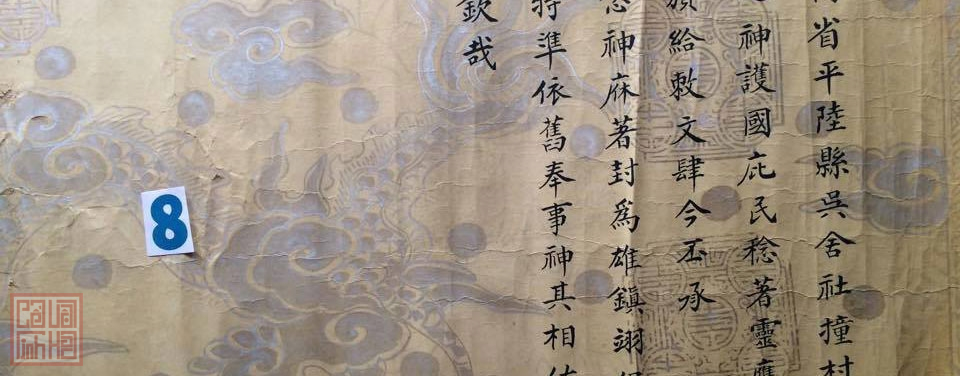 省平陸縣吳舍社撞村
神護國庇民稔著靈應
給敕文肆今丕承
神庥著封爲雄鎮翊
準依舊奉事神其相
欽哉
8